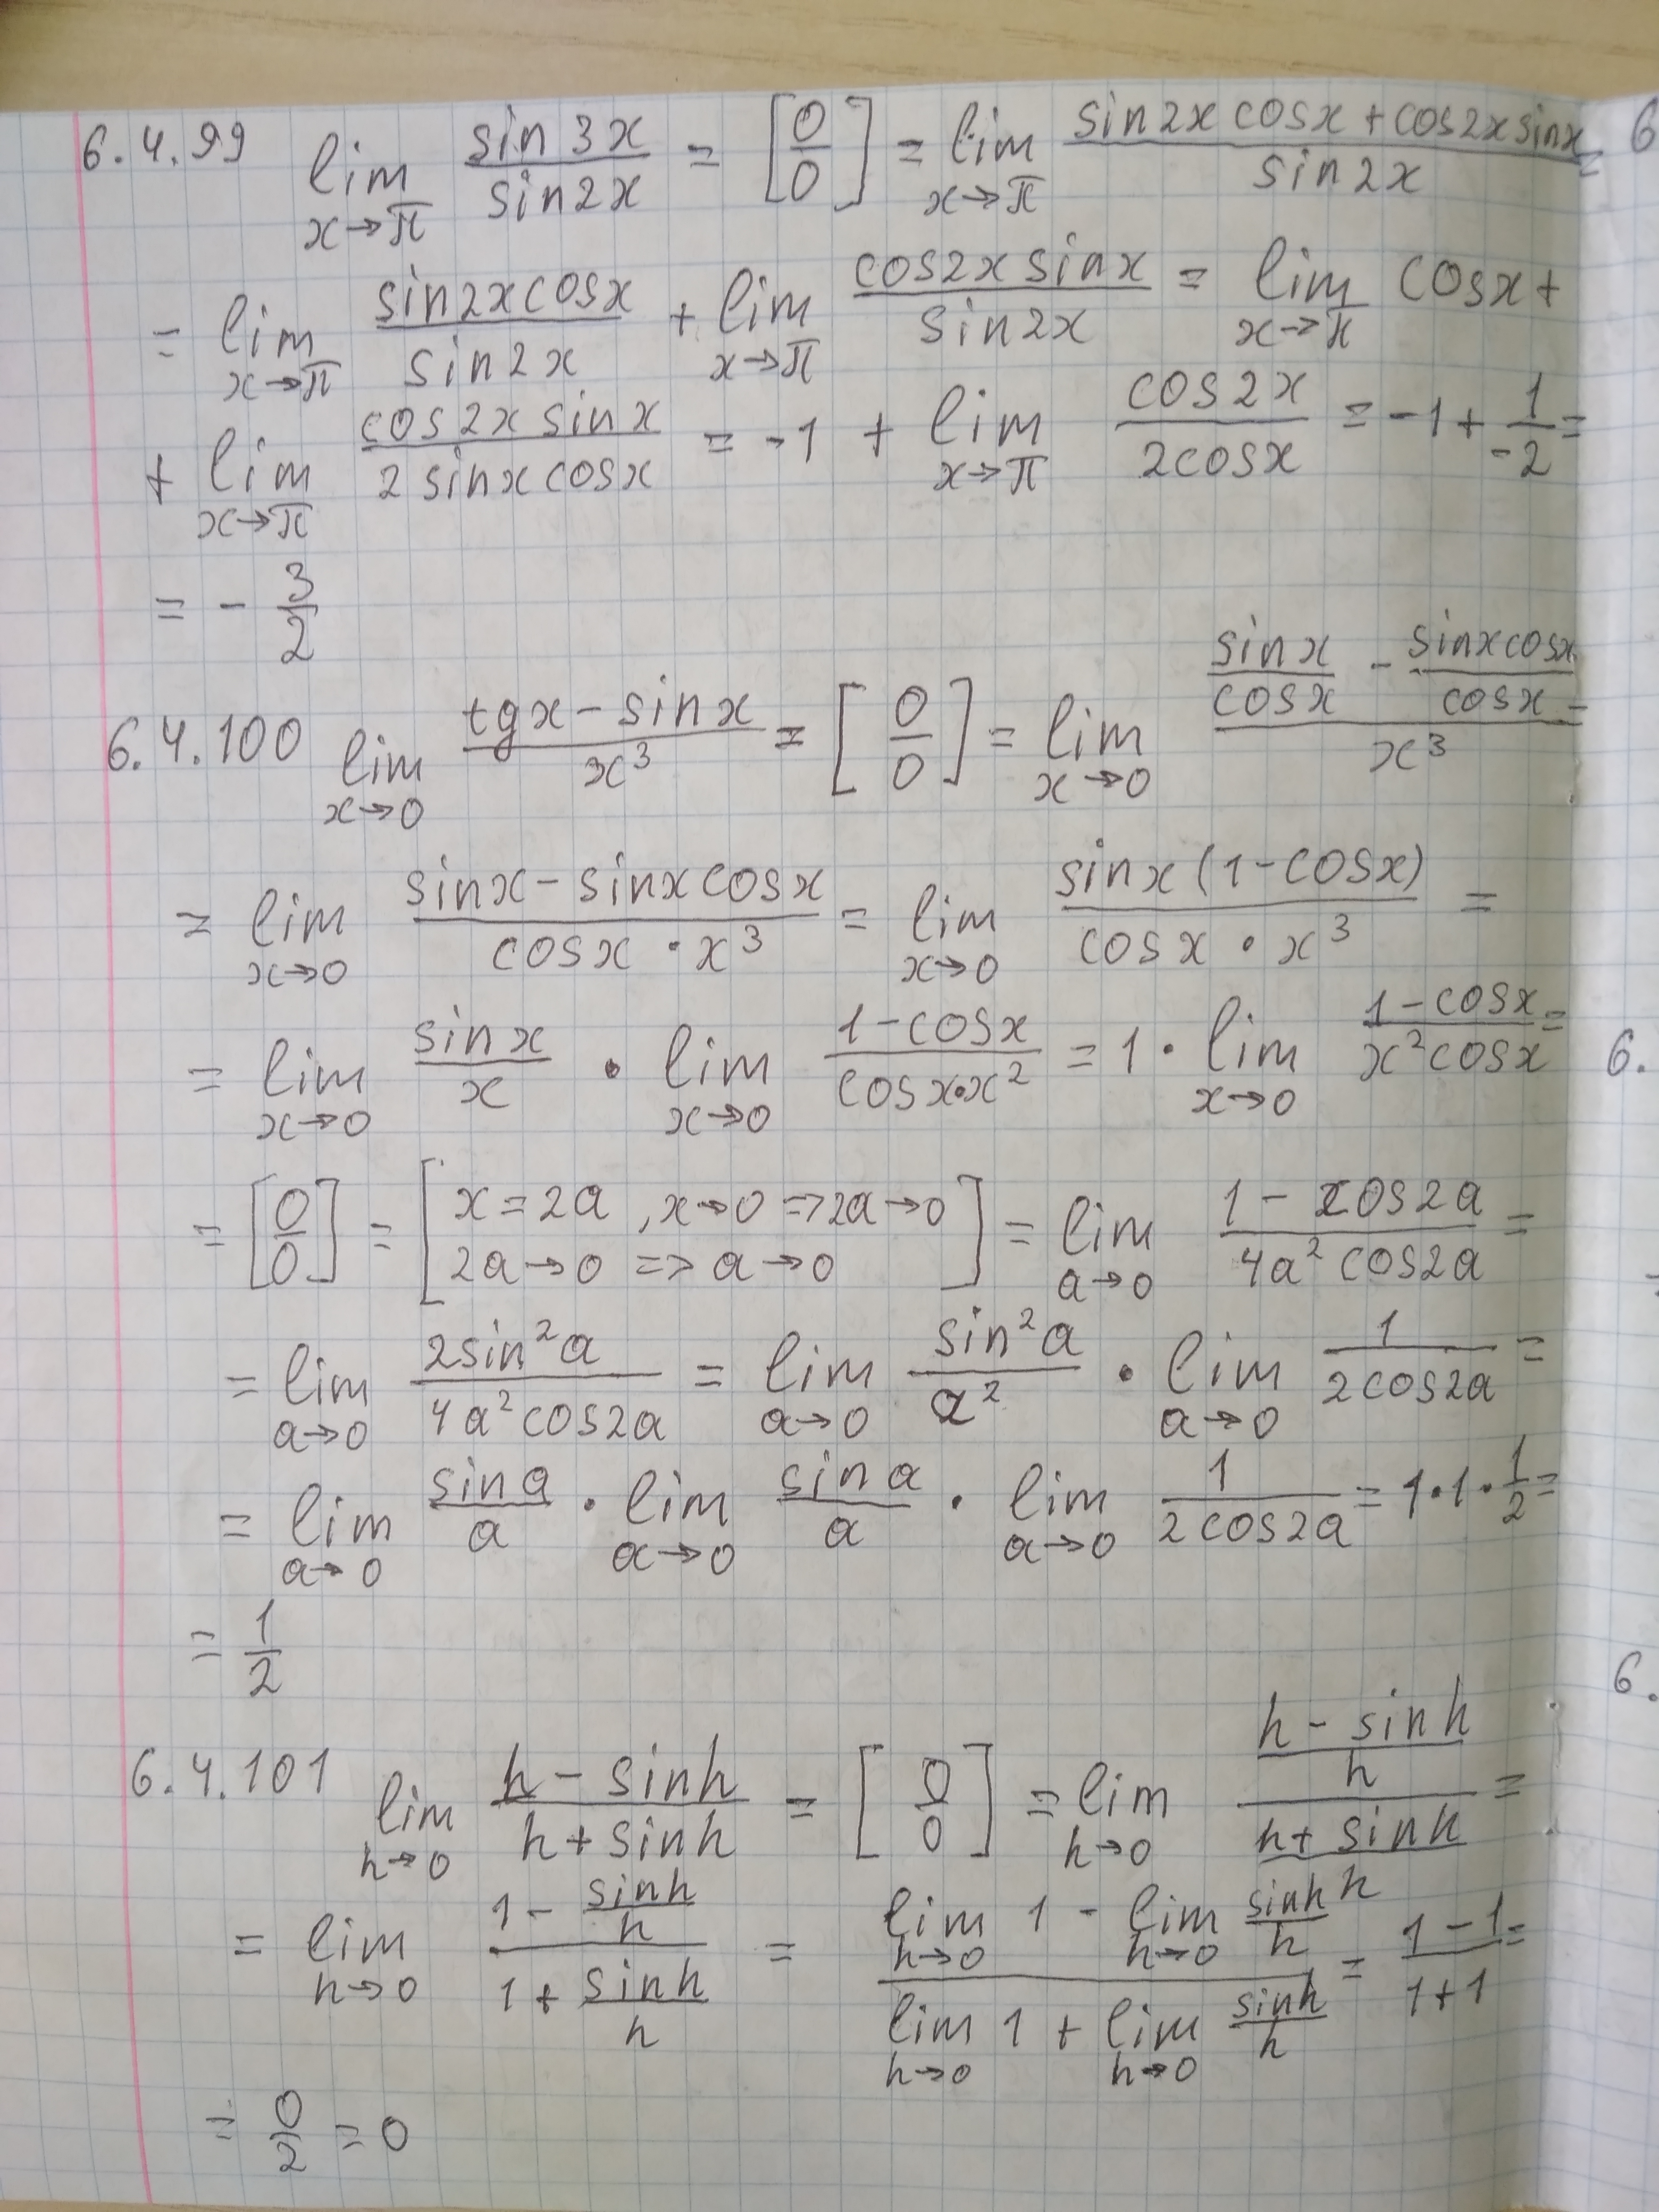 6.4.99 lim_{x→π} sin3x/sin2x = [0/0] = lim_{x→π} (sin2x cosx + cos2x sinx)/sin2x =
= lim_{x→π} sin2x cosx/sin2x + lim_{x→π} cos2x sinx/sin2x = lim_{x→π} cosx +
+ lim_{x→π} cos2x sinx/2sinx cosx = -1 + lim_{x→π} cos2x/2cosx = -1 + 1/-2 =
= - 3/2
6.4.100 lim_{x→0} (tgx - sinx)/x³ = [0/0] = lim_{x→0} (sinx/cosx - sinxcosx/cosx)/x³ =
= lim_{x→0} (sinx - sinxcosx)/(cosx · x³) = lim_{x→0} sinx(1-cosx)/(cosx · x³) =
= lim_{x→0} sinx/x · lim_{x→0} (1-cosx)/(cosx·x²) = 1 · lim_{x→0} (1-cosx)/(x²cosx) =
= [0/0] = [x=2a, x→0 => 2a→0 2a→0 => a→0] = lim_{a→0} (1 - cos2a)/(4a²cos2a) =
= lim_{a→0} 2sin²a/(4a²cos2a) = lim_{a→0} sin²a/a² · lim_{a→0} 1/(2cos2a) =
= lim_{a→0} sina/a · lim_{a→0} sina/a · lim_{a→0} 1/(2cos2a) = 1·1·1/2 =
= 1/2
6.4.101 lim_{h→0} (h - sinh)/(h + sinh) = [0/0] = lim_{h→0} ((h - sinh)/h)/((h + sinh)/h) =
= lim_{h→0} (1 - sinh/h)/(1 + sinh/h) = (lim_{h→0} 1 - lim_{h→0} sinh/h)/(lim_{h→0} 1 + lim_{h→0} sinh/h) = (1-1)/(1+1) =
= 0/2 = 0
6
6.
6.